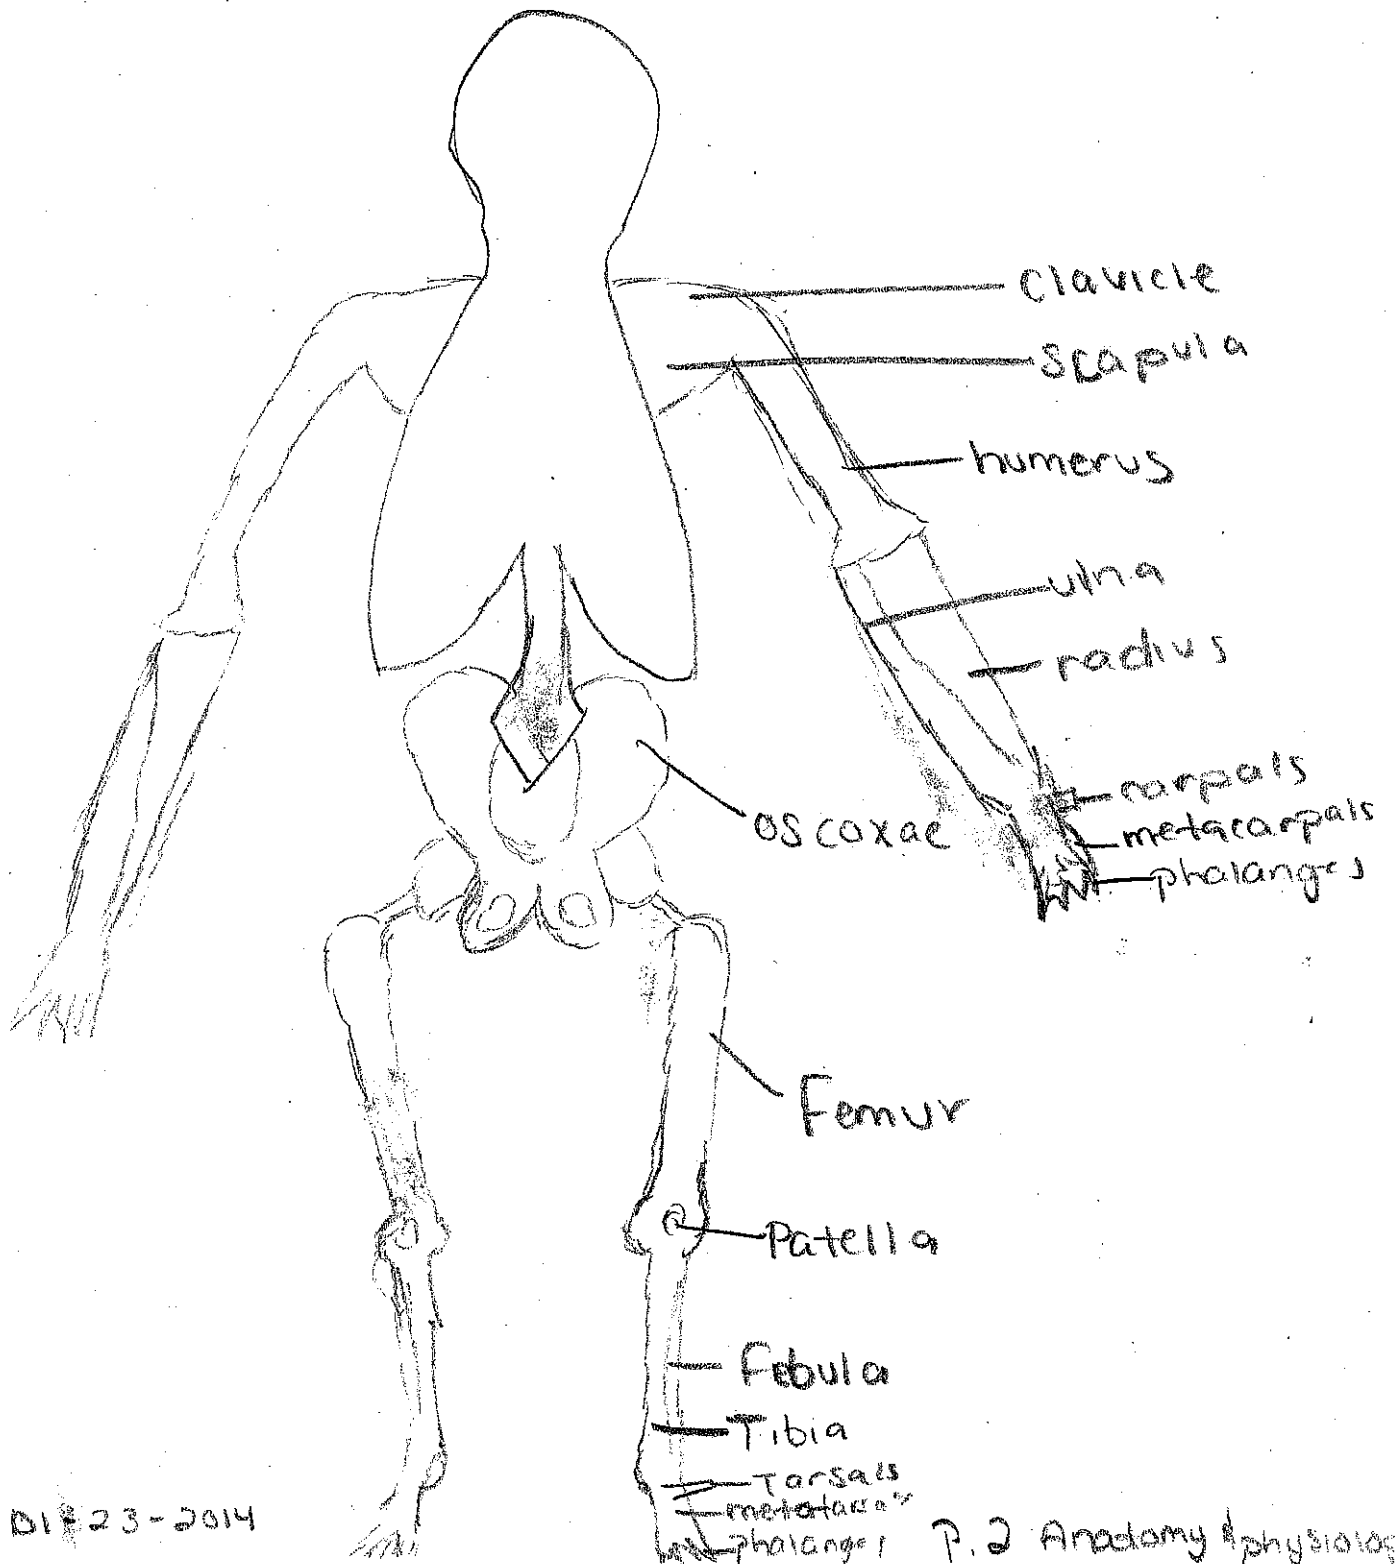 clavicle
scapula
humerus
ulna
radius
carpals
metacarpals
phalanges
os coxae
Femur
Patella
Febula
Tibia
Tarsals
phalanges
01-23-2014
P. 2 Anadomy & physiolog